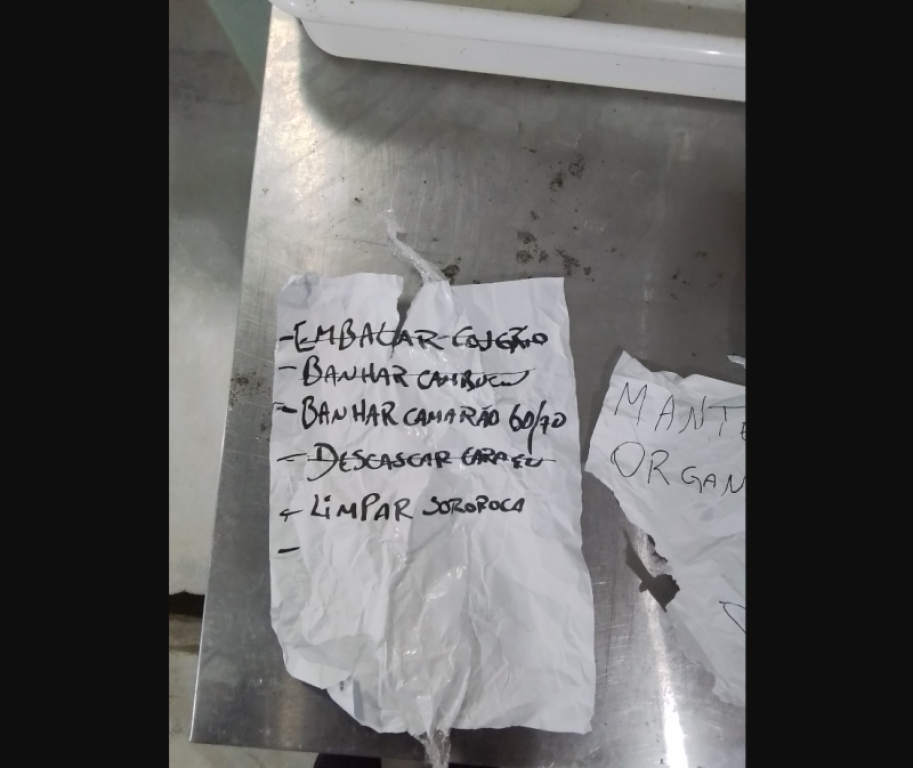 - EMBALAR CONGRIO
- BANHAR CAMBUCU
- BANHAR CAMARÃO 60/70
- DESCASCAR
- LIMPAR SOROROCA
-
MANTE
ORGAN